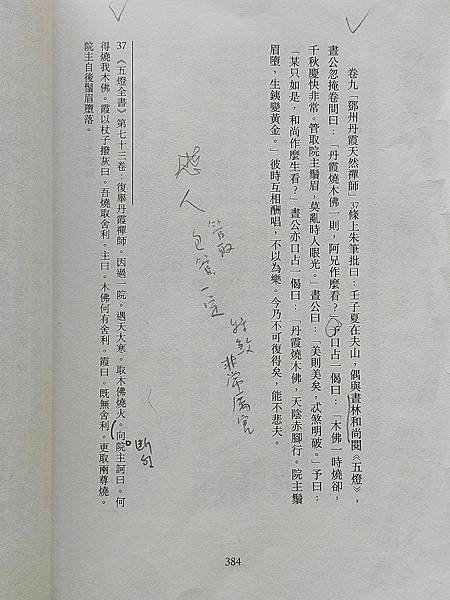 卷九「鄧州丹霞天然禪師」37條上朱筆批曰：壬子夏在夫山，偶與晝林和尚閱《五燈》，
晝公忽掩卷問曰：「丹霞燒木佛一則，阿兄作麼生看？」予口占一偈曰：「木佛一時燒卻，
千秋慶快非常。管取院主鬚眉，莫亂時人眼光。」晝公曰：「美則美矣，忒煞明破。」予曰：
「某只如是，和尚作麼生看？」晝公亦口占一偈曰：「丹霞燒木佛，天陰赤腳行。院主鬚
眉墮，生鐵變黃金。」彼時互相酬唱，不以為樂。今乃不可復得矣，能不悲夫。
特煞 非常厲害
管取
包管一定
人
37《五燈全書》第七十三卷：復舉丹霞禪師。因過一院。遇天大寒。取木佛燒火。向院主訶曰。何
得燒我木佛。霞以杖子撥灰曰。吾燒取舍利。主曰。木佛何有舍利。霞曰。既無舍利。更取兩尊燒。
院主自後鬚眉墮落。
斷句
384